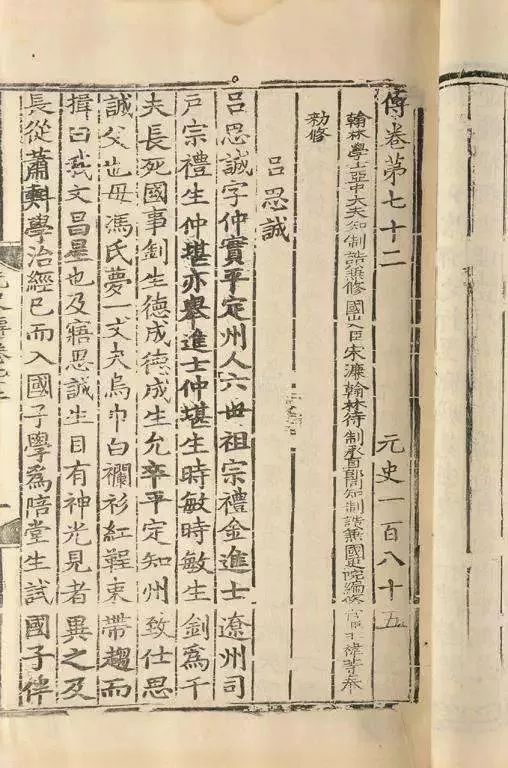 傳卷第七十二 元史一百八十五
翰林學士亞中大夫知制誥兼修國史臣宋濂翰林待制承直郎同知制誥兼國史院編修官臣王褘等奉
勑修
呂思誠
呂思誠字仲實平定州人六世祖宗禮金進士遼州司
戶宗禮生仲堪亦舉進士仲堪生時敏時敏生釗爲千
夫長死國事釗生德成德成生允卒平定知州致仕思
誠父也母馮氏夢一丈夫烏巾白襴衫紅鞓束帶趨而
揖曰我文昌星也及寤思誠生目有神光見者異之及
長從蕭𣂏學治經已而入國子學爲陪堂生試國子伴